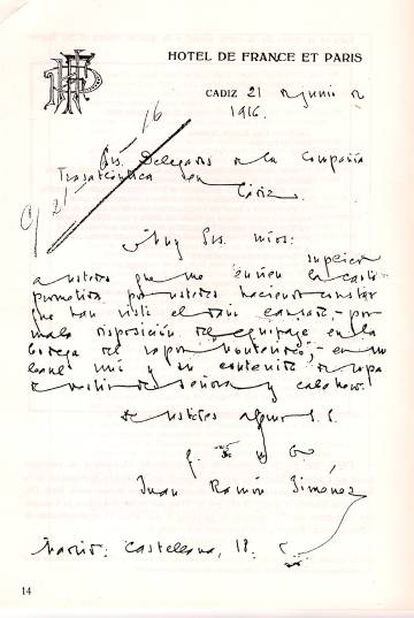 HOTEL DE FRANCE ET PARIS
CADIZ 21 de junio de
1916.
C/ 21-6-16
Srs. Delegados de la Compañía
Trasatlántica en
Cádiz.
Muy Srs. míos:
suplico
a ustedes que me envíen la carta
prometida por ustedes haciendo constar
que han visto el daño causado, - por
mala disposición del equipaje en la
bodega del vapor "Montevideo", - en un
baul mío y su contenido de ropa
de vestir de señora y caballero.
de ustedes afmo. s. s.
q. b. s. m.
Juan Ramón Jiménez
Madrid: Castellana, 18.
14